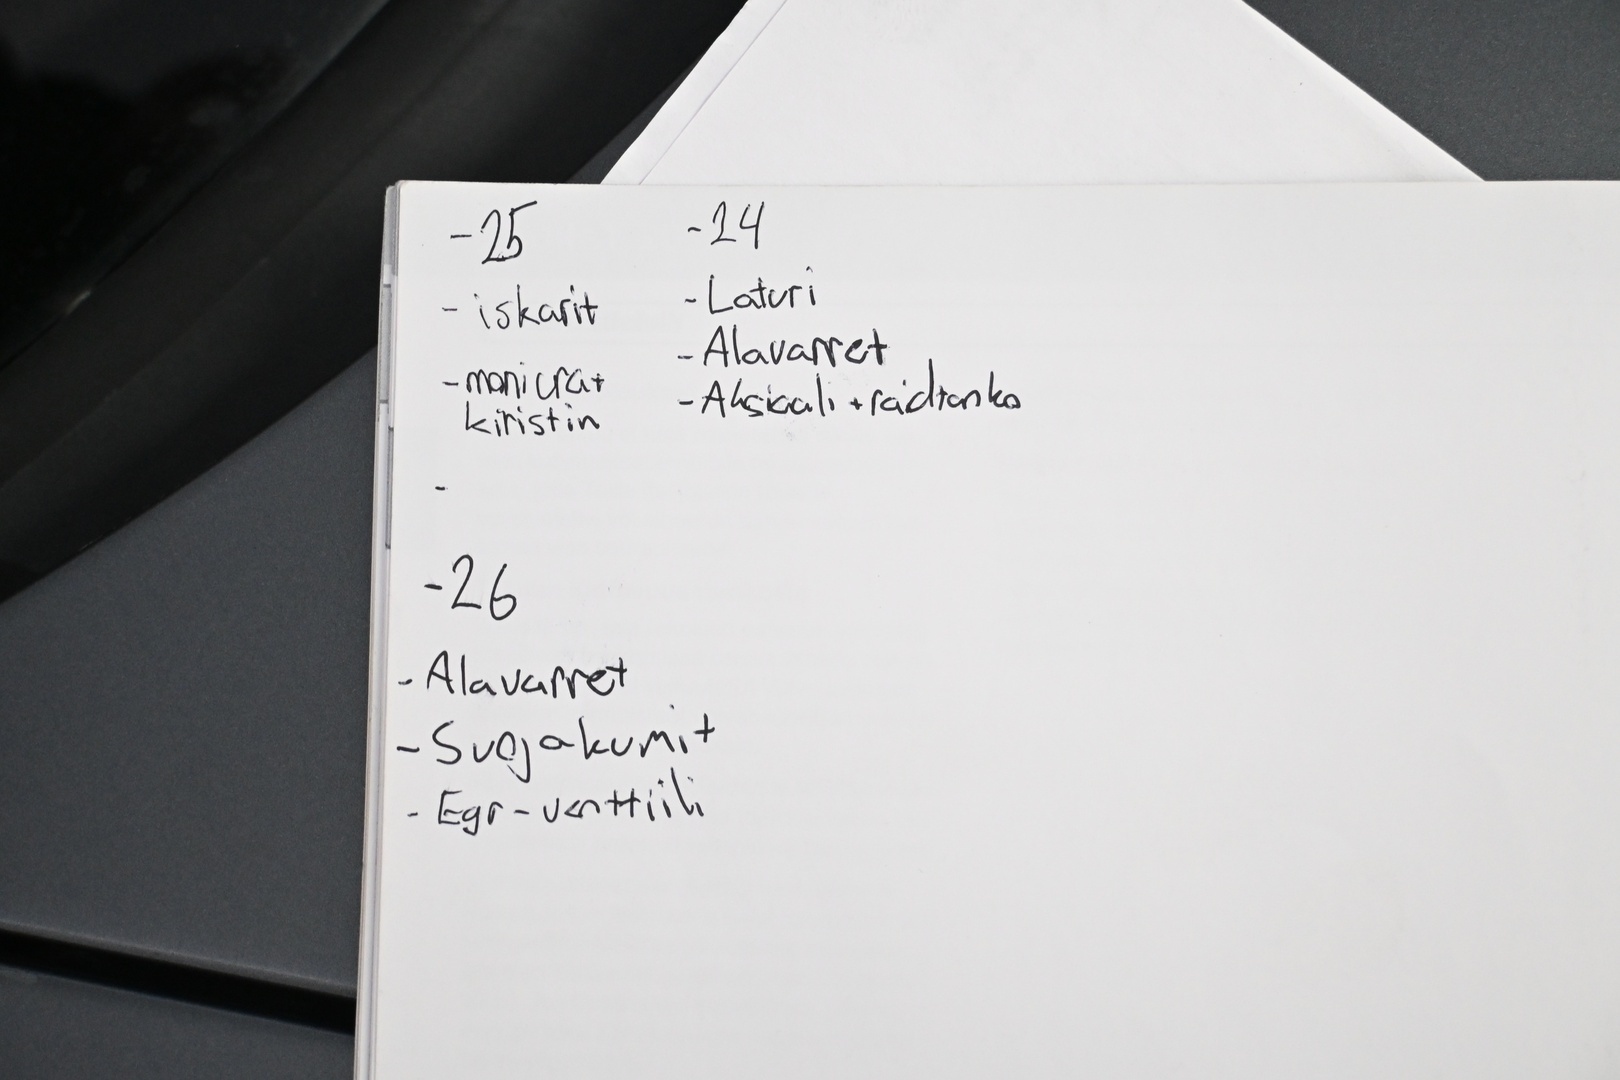 -25
- iskarit
- moniurat
kiristin
-
-24
- Laturi
- Alavarret
- Aksiaali + raidtanko
-26
- Alavarret
- Suojakumit
- Egr-venttiili